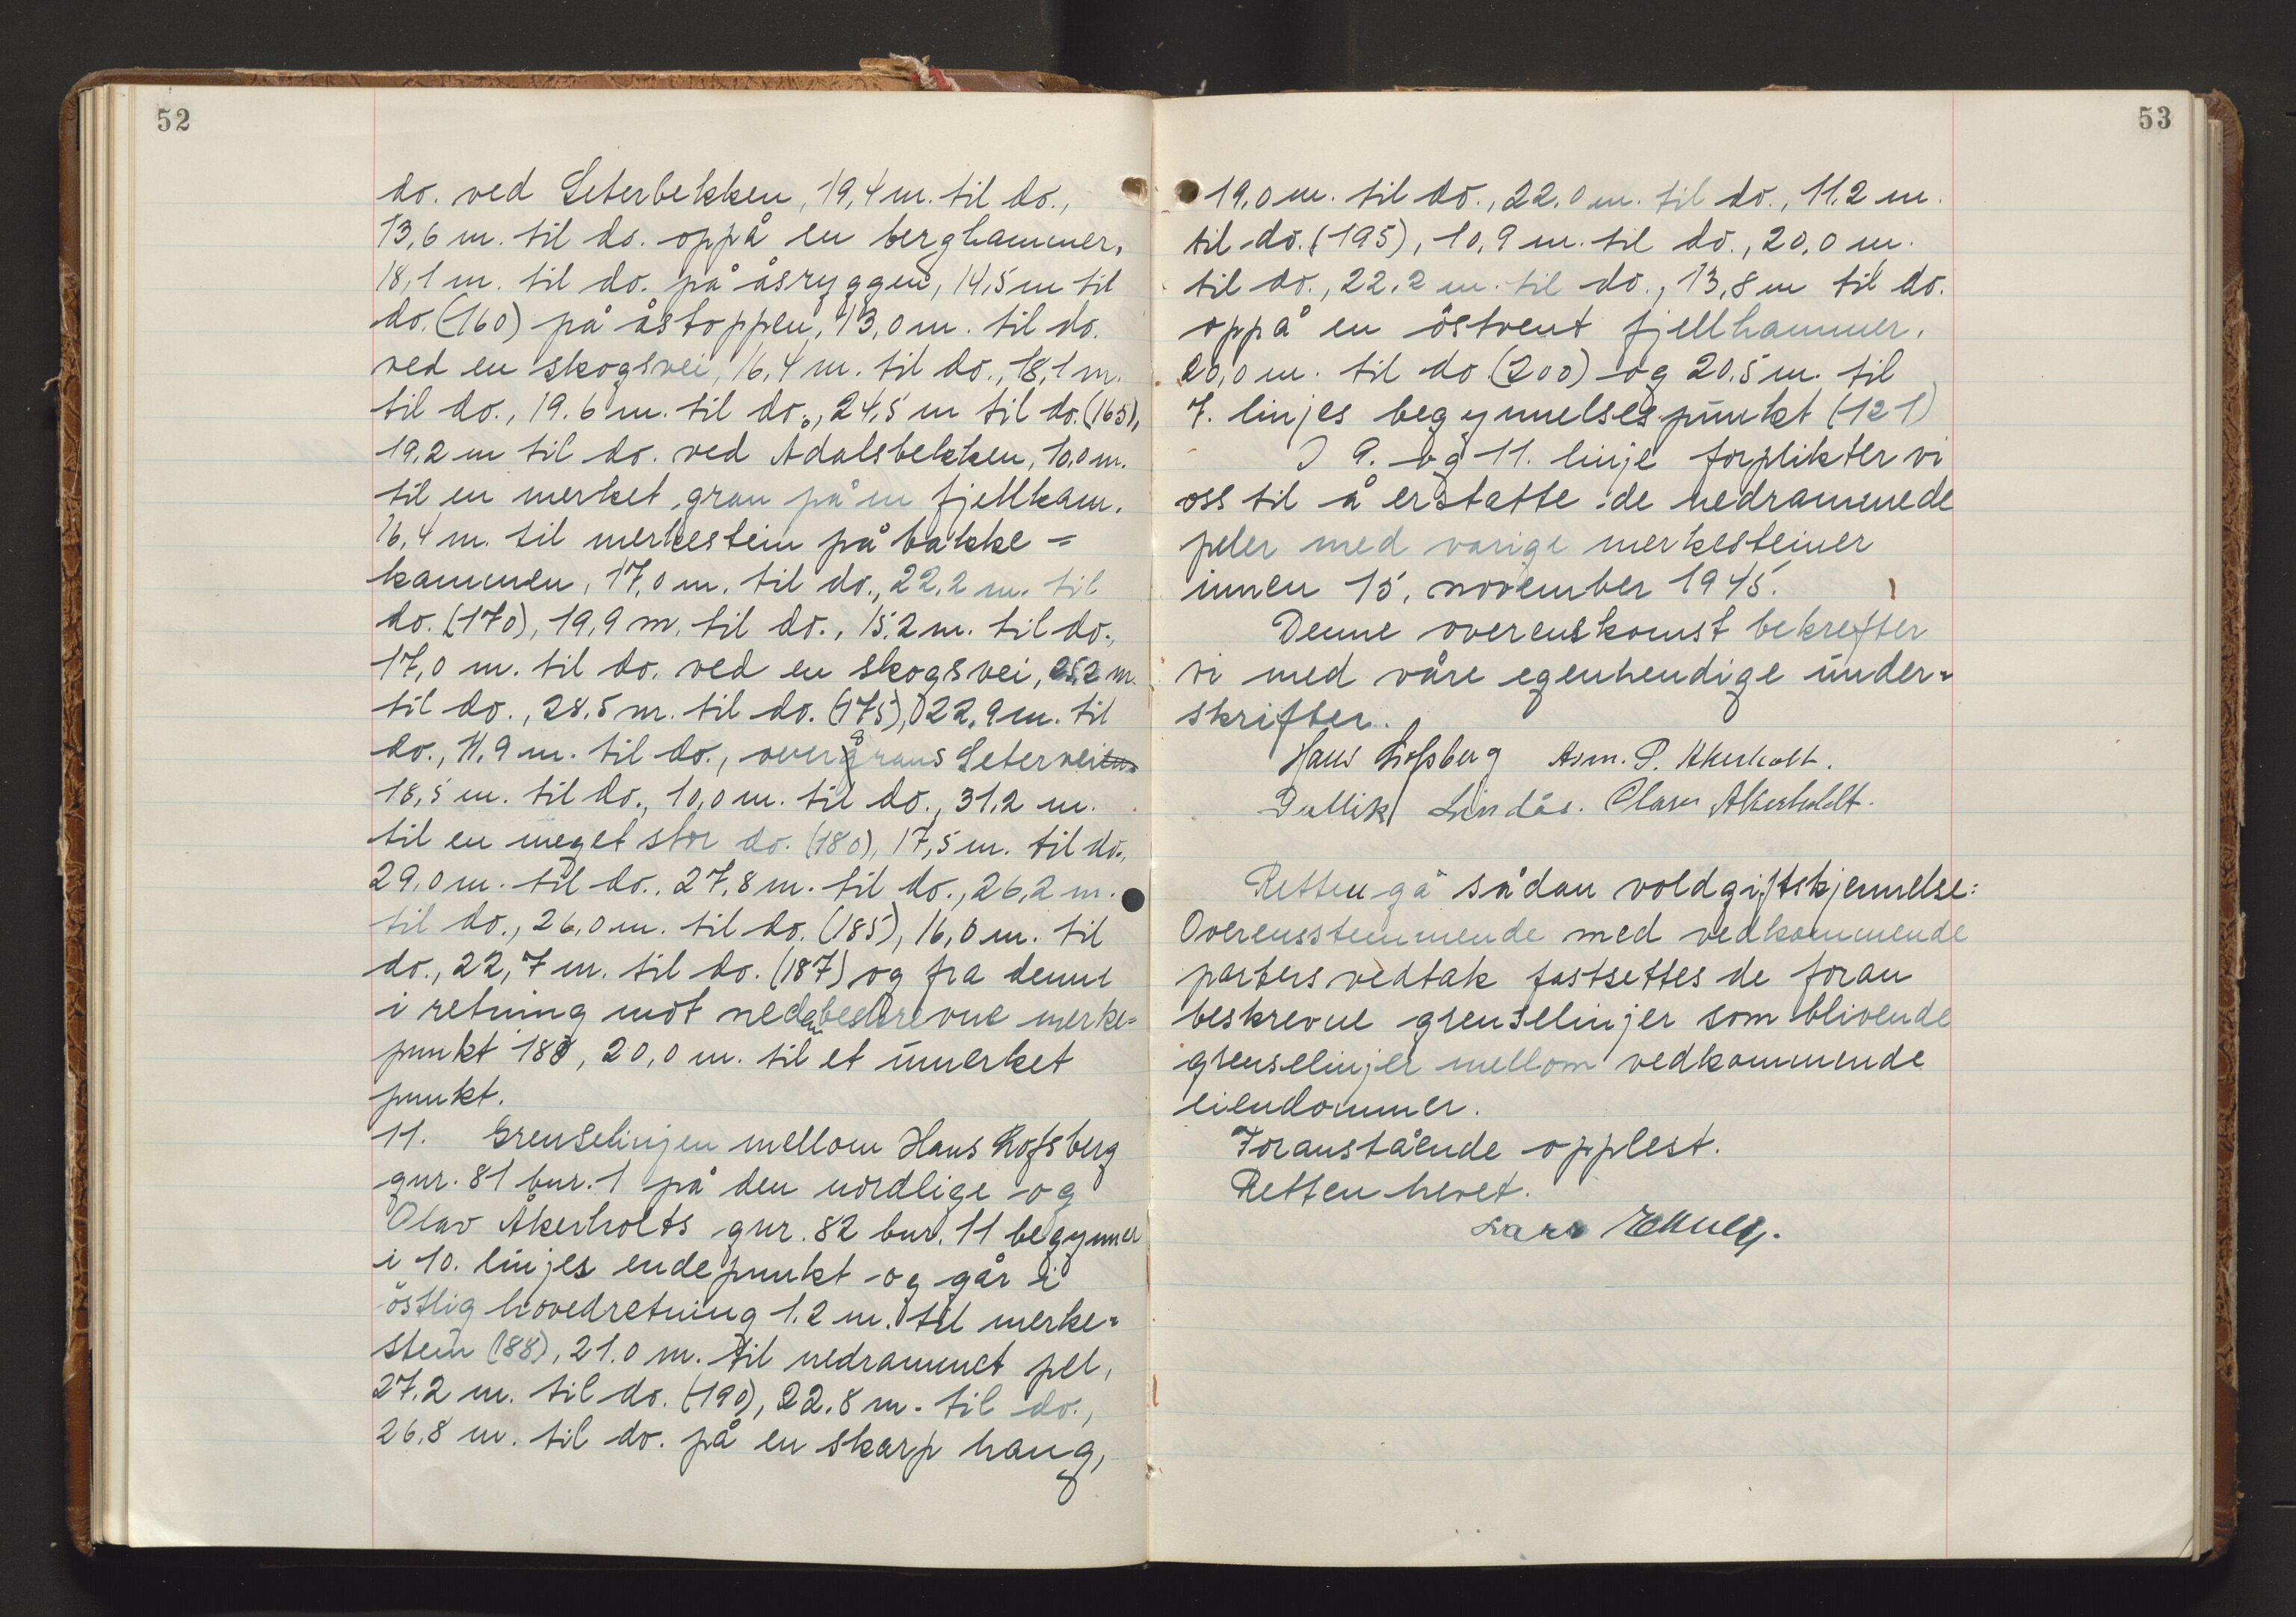 52
do. ved Seterbekken, 19,4 m. til do.,
13,6 m. til do. oppå en berghammer,
18,1 m. til do. på åsryggen, 14,5 m til
do. (160) på åstoppen, 13,0 m. til do.
ved en skogsvei, 16,4 m. til do., 18,1 m.
til do., 19.6 m. til do., 24,5 m til do. (165),
19,2 m til do. ved Ådalsbekken, 10,0 m.
til en merket gran på en fjellkam.
16,4 m. til merkestein på bakke=
kammen, 17,0 m. til do., 22,2 m. til
do. (170), 19,9 m. til do., 15,2 m. til do.,
17,0 m. til do. ved en skogsvei, 25,2 m.
til do., 28.5 m. til do. (175), 22,9 m. til
do., 11,9 m. til do., over grans Seterveien
18,5 m. til do., 10,0 m. til do., 31,2 m.
til en meget stor do. (180), 17,5 m. til do.,
29,0 m. til do., 27,8 m. til do., 26,2 m.
til do., 26,0 m. til do. (185), 16,0 m. til
do., 22,7 m. til do. (187) og fra denne
i retning mot nedenbeskrevne merke=
punkt 188, 20,0 m. til et umerket
punkt.
11. Grenselinjen mellom Hans Rofsberg
gnr. 81 bnr. 1 på den nordlige og
Olav Åkerholts gnr. 82 bnr. 11 begynner
i 10. linjes endepunkt og går i
östlig hovedretning 1.2 m. til merke=
stein (188), 21.0 m. til nedrammet pel,
27.2 m. til do. (190), 22.8 m. til do.,
26,8 m. til do. på en skarp haug,
53
19,0 m. til do., 22,0 m. til do., 11.2 m.
til do. (195), 10,9 m. til do., 20,0 m.
til do., 22,2 m. til do., 13,8 m til do.
oppå en östvent fjellhammer.
20,0 m. til do (200) og 20.5 m. til
7. linjes begynnelsespunkt (121)
I 9. og 11. linje forplikter vi
oss til å erstatte de nedrammede
peler med varige merkesteiner
innen 15. november 1945.
Denne overenskomst bekrefter
vi med våre egenhendige under=
skrifter.
Hans Rofsberg Asm. P. Akerholt.
Lindås. Olav Akerholdt.
Retten gå sådan voldgiftskjennelse:
Overensstemmende med vedkommende
parters vedtak fastsettes de foran
beskrevne grenselinjer som blivende
grenselinjer mellom vedkommende
eiendommer.
Foranstående opplest.
Retten hevet.
Lars